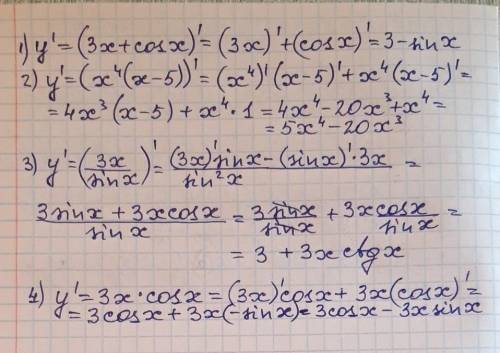 1) y' = (3x + cosx)' = (3x)' + (cosx)' = 3 - sinx
2) y' = (x⁴(x-5))' = (x⁴)'(x-5)' + x⁴(x-5)' =
= 4x³(x-5) + x⁴·1 = 4x⁴ - 20x³ + x⁴ =
= 5x⁴ - 20x³
3) y' = (3x/sinx)' = ((3x)'sinx - (sinx)'·3x)/sin²x =
(3sinx + 3xcosx)/sinx = 3sinx/sinx + 3xcosx/sinx =
= 3 + 3x ctgx
4) y' = 3x·cosx = (3x)'cosx + 3x(cosx)' =
= 3cosx + 3x(-sinx) = 3cosx - 3xsinx